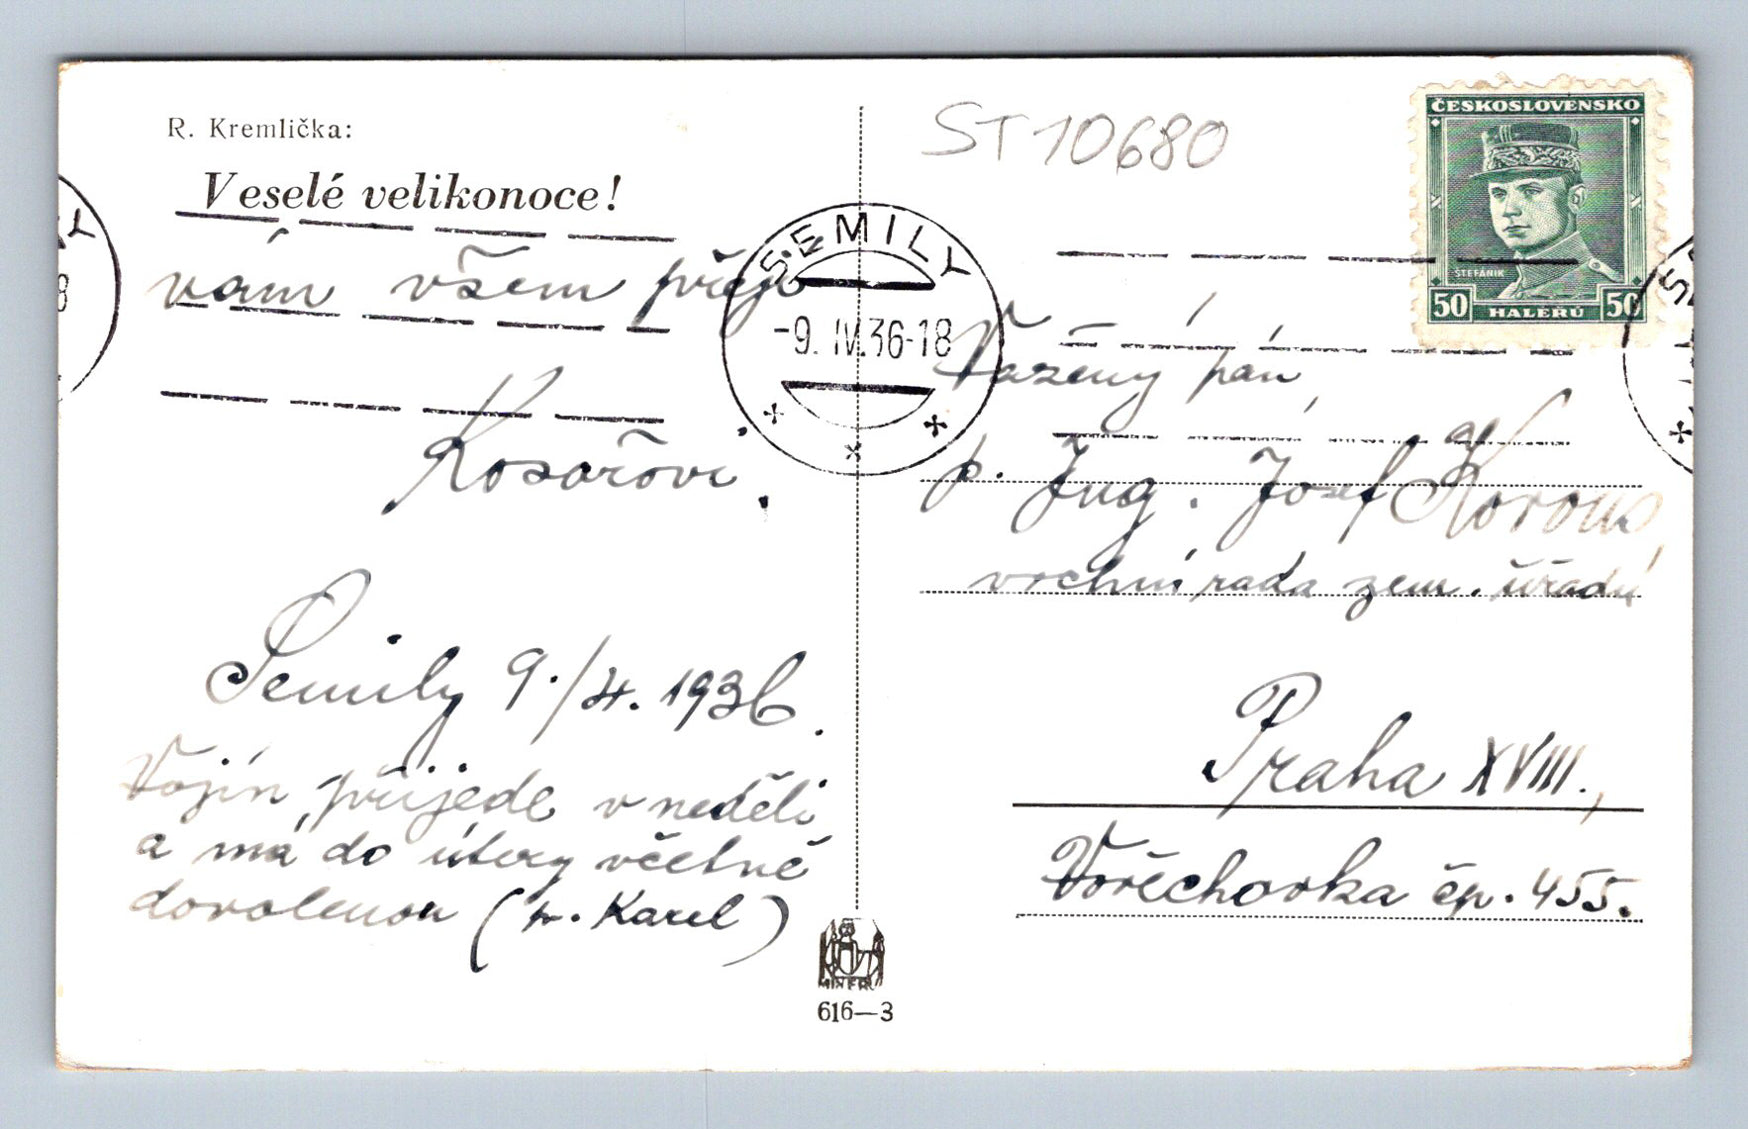 R. Kremlička:
Veselé velikonoce!
vám všem přeje
Kosařovi.
Semily 9./4. 1936.
Vojín přijede v neděli
a má do úterý včetně
dovolenou ( Karel)
ST10680
ČESKOSLOVENSKO
ŠTEFÁNIK
50 HALÉŘŮ 50
SEMILY
-9. IV.36-18
Vážený pán,
p. Ing. Josef
vrchní rada zem. úřadu
Praha XVIII.,
Vořechovka čp. 455.
MINERVA
616—3